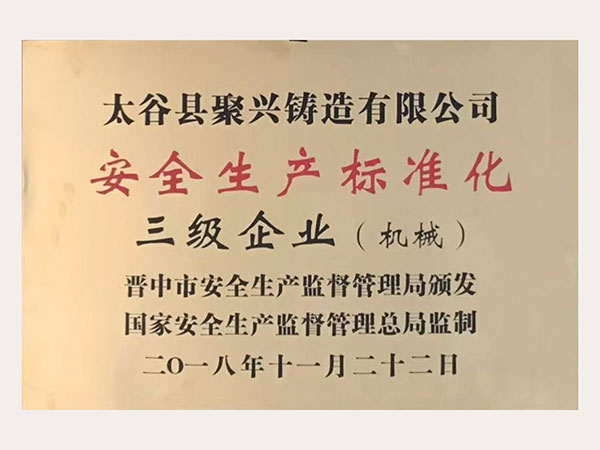 太谷县聚兴铸造有限公司
安全生产标准化
三级企业（机械）
晋中市安全生产监督管理局颁发
国家安全生产监督管理总局监制
二〇一八年十一月二十二日